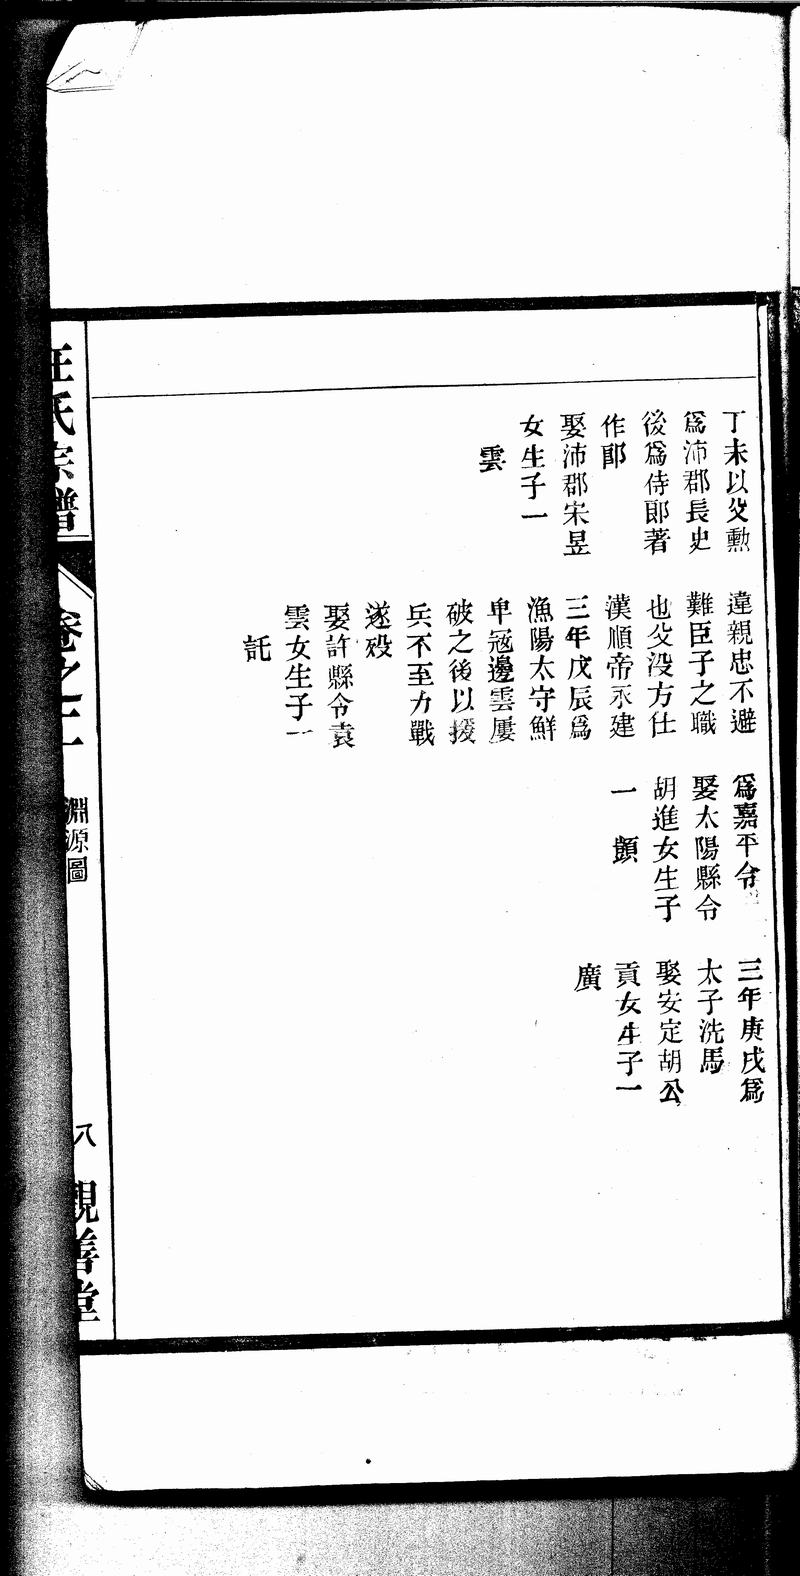 丁未以父勲
爲沛郡長史
後爲侍郎著
作郎
娶沛郡宋昱
女生子一
雲
違親忠不避
難臣子之職
也父没方仕
漢順帝永建
三年戊辰爲
漁陽太守鮮
卑冦邊雲屢
破之後以援
兵不至力戰
遂殁
娶許縣令袁
雲女生子一
託
爲嘉平令
娶太陽縣令
胡進女生子
一 顗
三年庚戌爲
太子洗馬
娶安定胡公
貢女生子一
廣
汪氏宗譜
卷之二
淵源圖
八
觀善堂